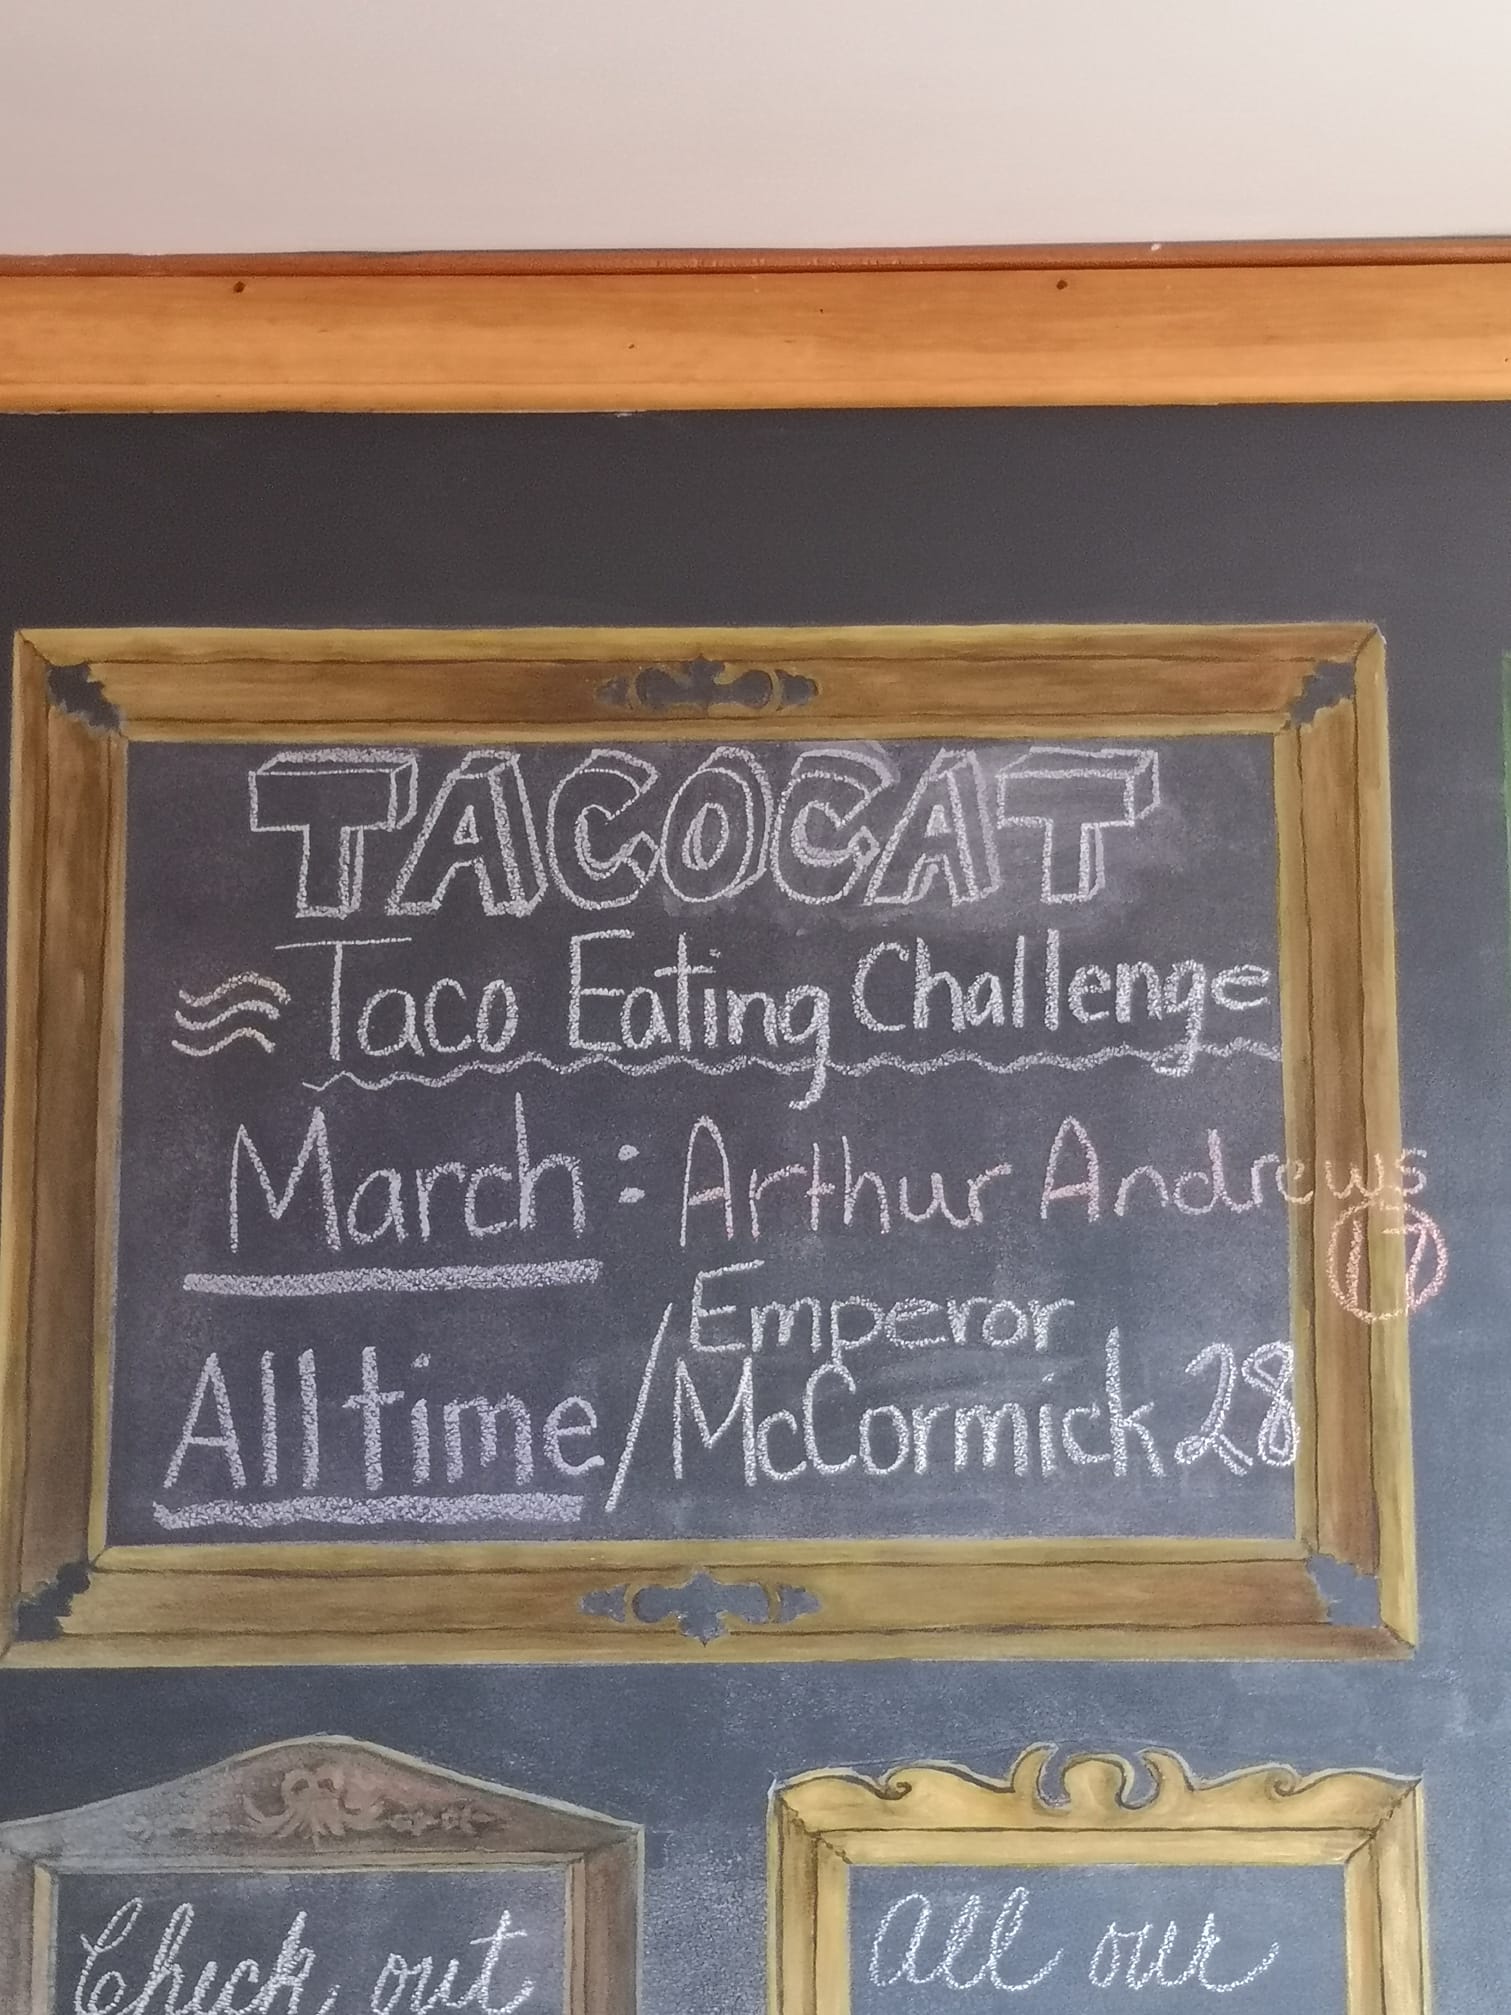 TACOCAT
Taco Eating Challenge
March: Arthur Andrews
17
Emperor
All time / McCormick 28
Check out
All our